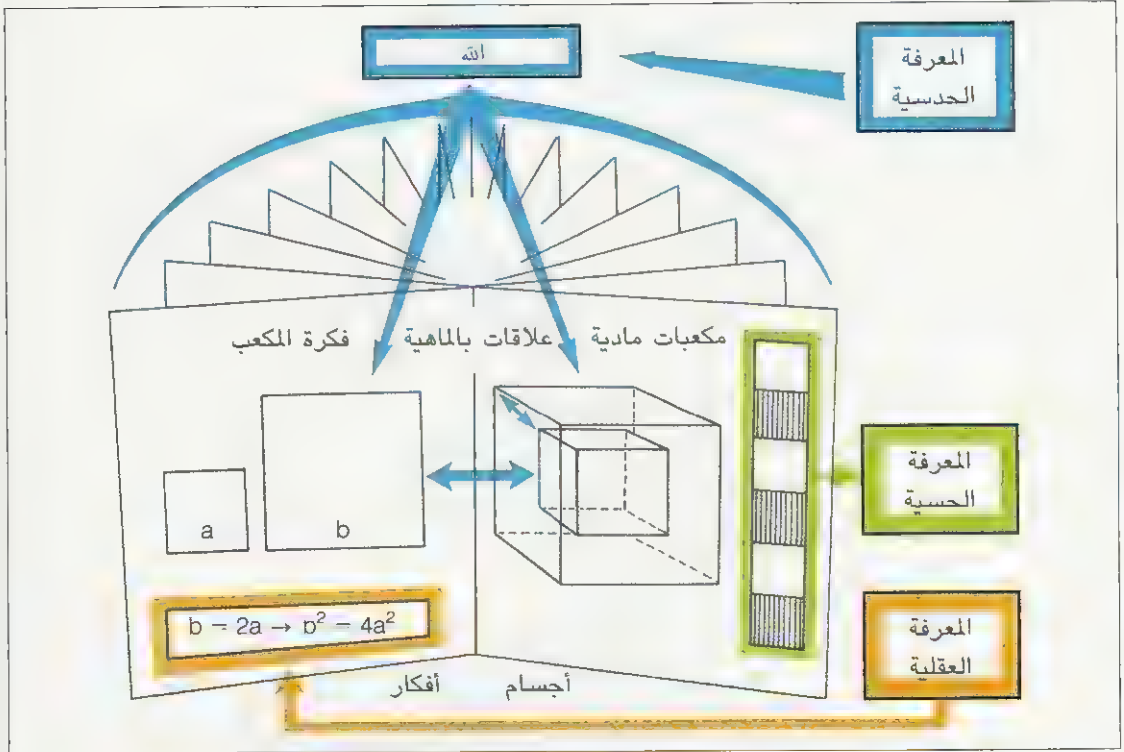 الله
المعرفة
الحدسية
مكعبات مادية
علاقات بالماهية
فكرة المكعب
a
b
المعرفة
الحسية
b = 2a → b² = 4a²
المعرفة
العقلية
أجسام
أفكار